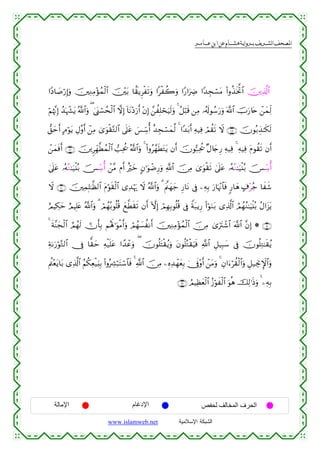 المصحف الشريف برواية هشام عن ابن عامر
الَّذِينَ اتَّخَذُوا مَسْجِدًا ضِرَارًا وَكُفْرًا وَتَفْرِيقًا بَيْنَ الْمُؤْمِنِينَ وَإِرْصَادًا
لِّمَنْ حَارَبَ اللَّهَ وَرَسُولَهُ مِن قَبْلُ وَلَيَحْلِفُنَّ إِنْ أَرَدْنَا إِلَّا الْحُسْنَىٰ وَاللَّهُ يَشْهَدُ إِنَّهُمْ
لَكَٰذِبُونَ ۝١٠٧ لَا تَقُمْ فِيهِ أَبَدًا لَّمَسْجِدٌ أُسِّسَ عَلَى التَّقْوَىٰ مِنْ أَوَّلِ يَوْمٍ أَحَقُّ
أَن تَقُومَ فِيهِ فِيهِ رِجَالٌ يُحِبُّونَ أَن يَتَطَهَّرُوا وَاللَّهُ يُحِبُّ الْمُطَّهِّرِينَ ۝١٠٨ أَفَمَنْ
أُسِّسَ بُنْيَٰنُهُ عَلَىٰ تَقْوَىٰ مِنَ اللَّهِ وَرِضْوَٰنٍ خَيْرٌ أَم مَّنْ أُسِّسَ بُنْيَٰنُهُ عَلَىٰ
شَفَا جُرْفٍ هَارٍ فَانْهَارَ بِهِ فِي نَارِ جَهَنَّمَ وَاللَّهُ لَا يَهْدِي الْقَوْمَ الظَّٰلِمِينَ ۝١٠٩ لَا
يَزَالُ بُنْيَٰنُهُمُ الَّذِي بَنَوْا رِيبَةً فِي قُلُوبِهِمْ إِلَّا أَن تَقَطَّعَ قُلُوبُهُمْ وَاللَّهُ عَلِيمٌ حَكِيمٌ
۝١١٠ ۞ إِنَّ اللَّهَ اشْتَرَىٰ مِنَ الْمُؤْمِنِينَ أَنفُسَهُمْ وَأَمْوَٰلَهُم بِأَنَّ لَهُمُ الْجَنَّةَ
يُقَٰتِلُونَ فِي سَبِيلِ اللَّهِ فَيَقْتُلُونَ وَيُقْتَلُونَ وَعْدًا عَلَيْهِ حَقًّا فِي التَّوْرَىٰةِ
وَالْإِنجِيلِ وَالْقُرْءَانِ وَمَنْ أَوْفَىٰ بِعَهْدِهِ مِنَ اللَّهِ فَاسْتَبْشِرُوا بِبَيْعِكُمُ الَّذِي بَايَعْتُم
بِهِ وَذَٰلِكَ هُوَ الْفَوْزُ الْعَظِيمُ ۝١١١
الحرف المخالف لحفص الإدغام الإمالة
الشبكة الإسلامية www.islamweb.net